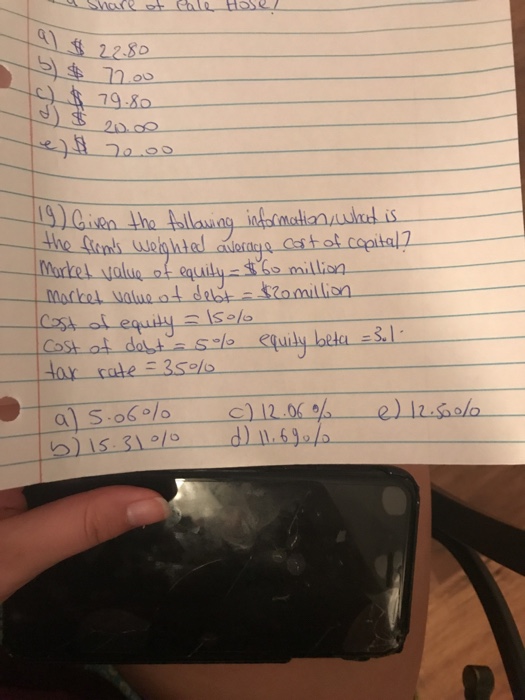 a share of Pale Hose?
a) $ 22.80
b) $ 77.00
c) $ 79.80
d) $ 20.00
e) $ 70.00
19) Given the following information, what is
the firm's weighted average cost of capital?
Market value of equity = $60 million
market value of debt = $20 million
Cost of equity = 15%
Cost of debt = 5% equity beta = 3.1.
tax rate = 35%
a) 5.06% c) 12.06% e) 12.50%
b) 15.31% d) 11.69%